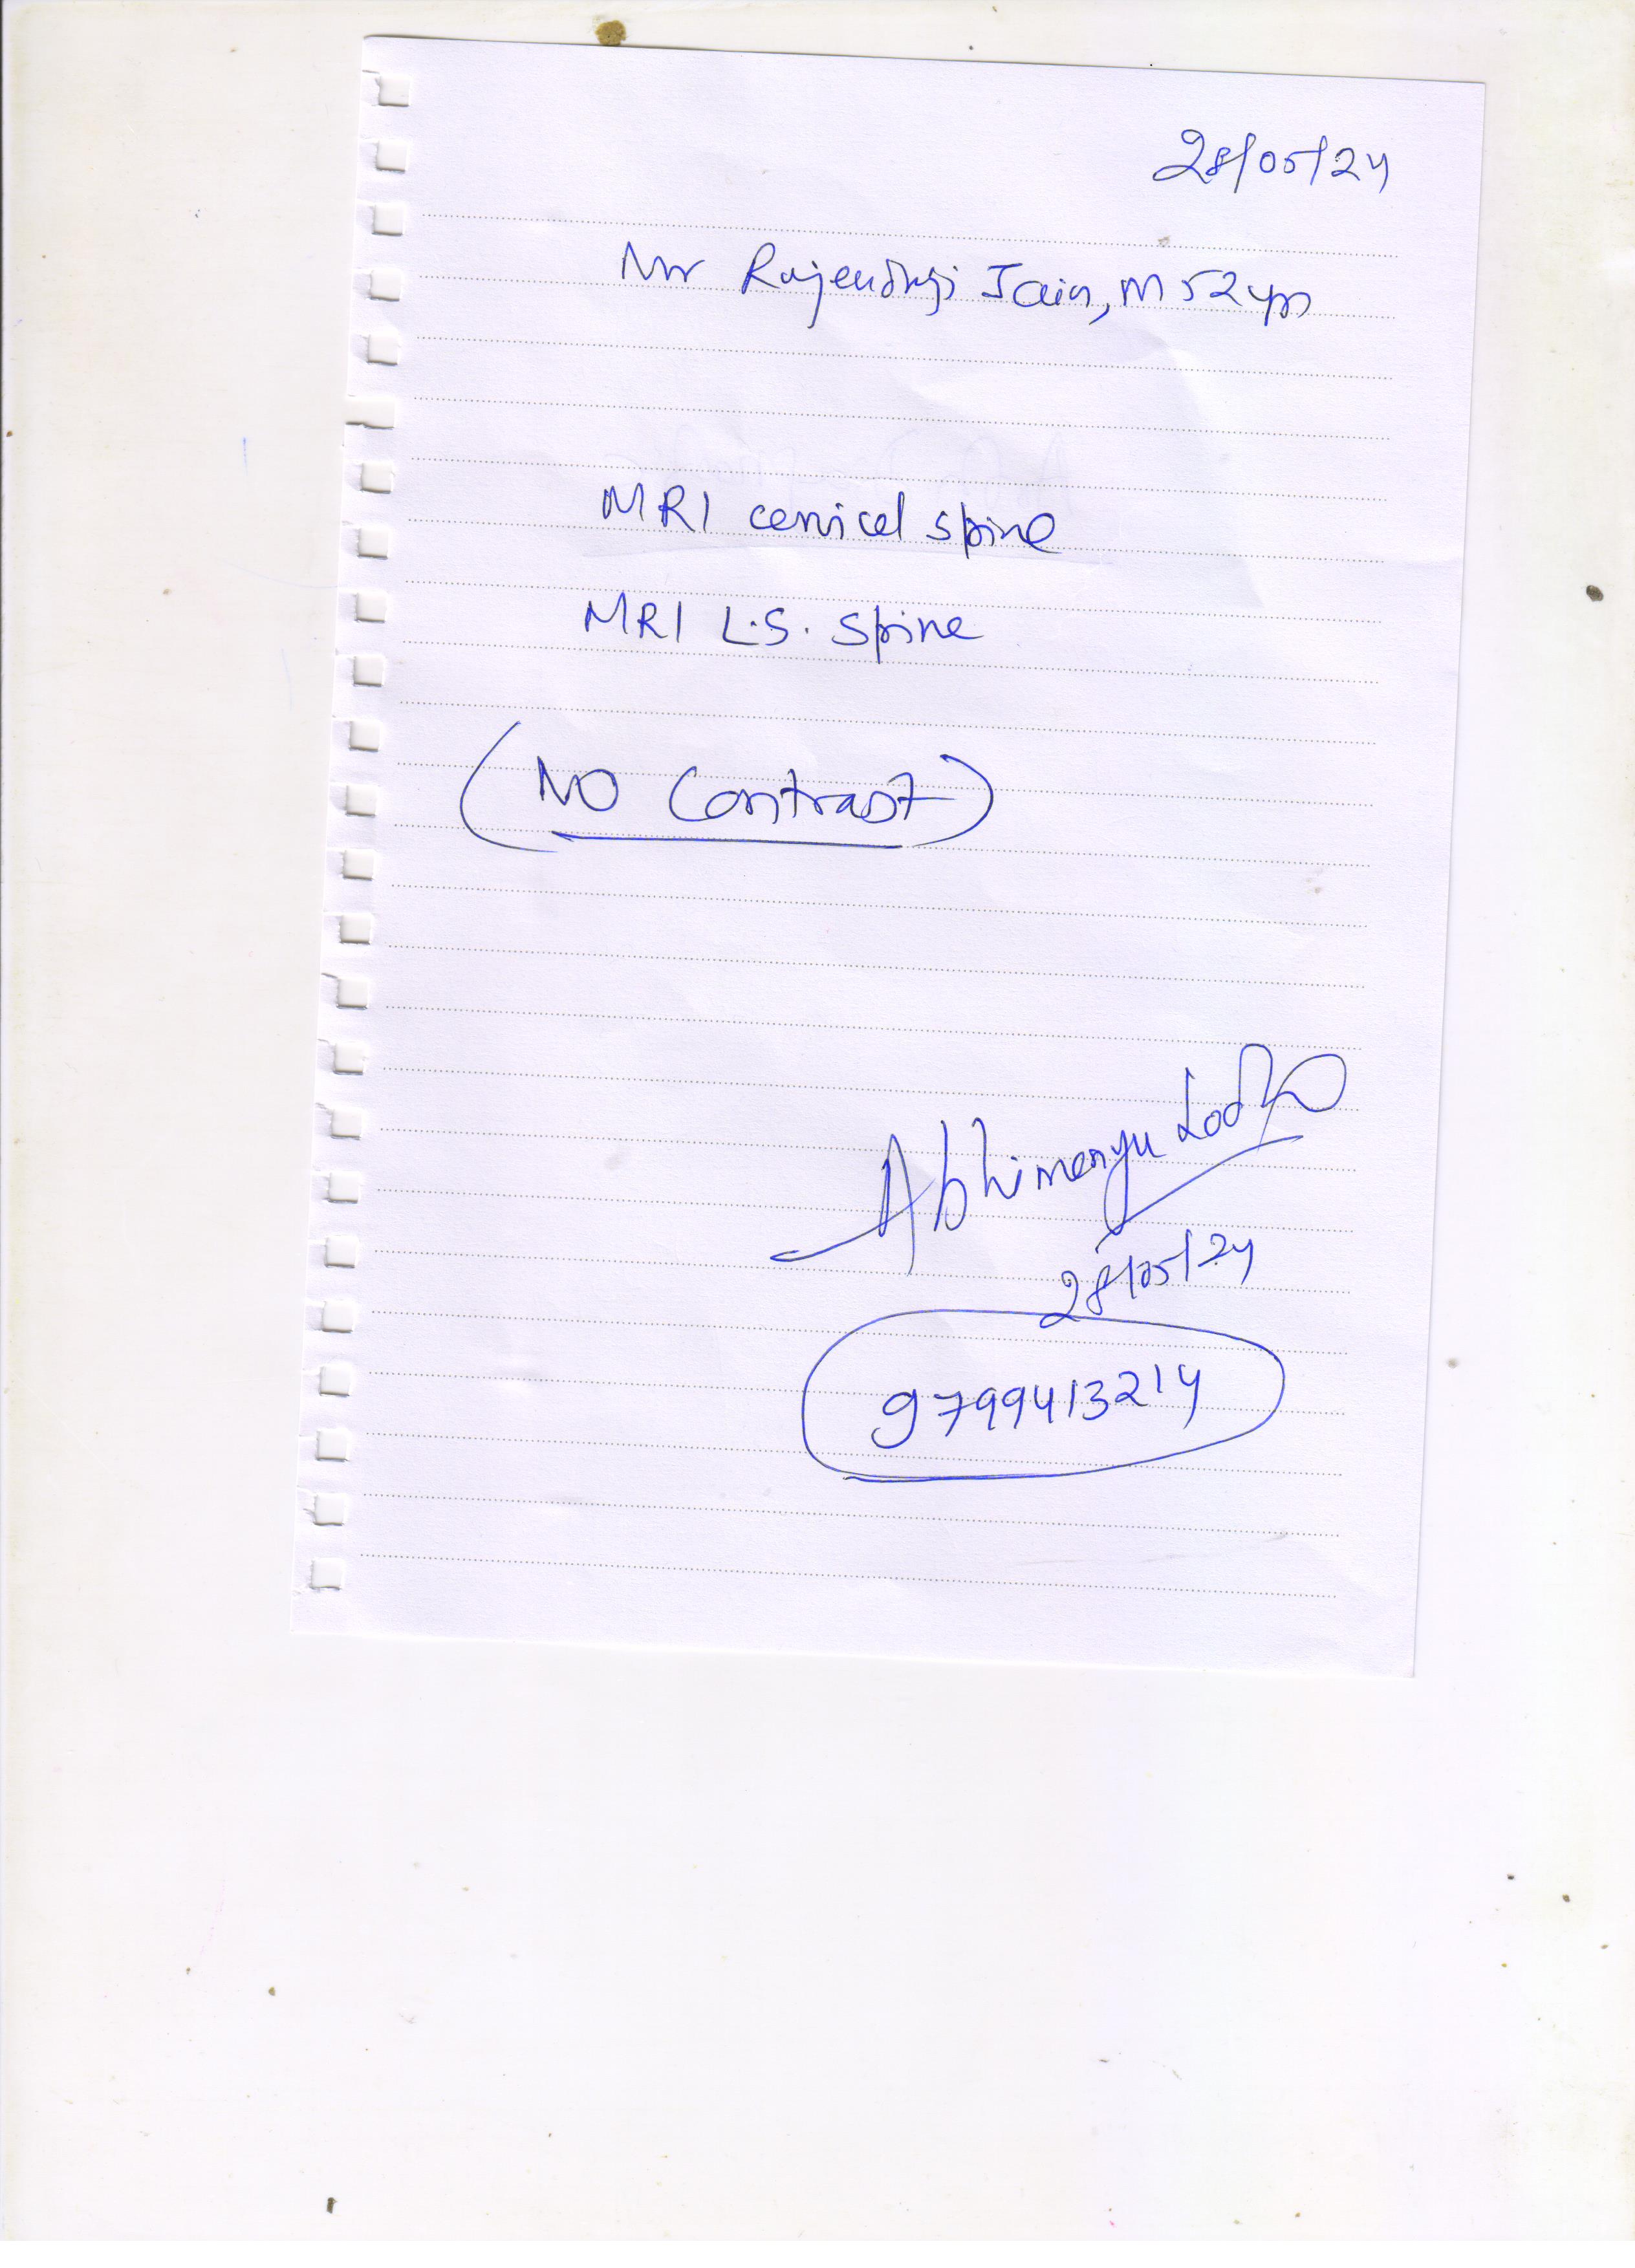 28/05/24
Mr Rajendraji Jain, M 52 yrs
MRI cervical spine
MRI L.S. spine
(NO Contrast)
Abhimanyu
28/05/24
9799413214